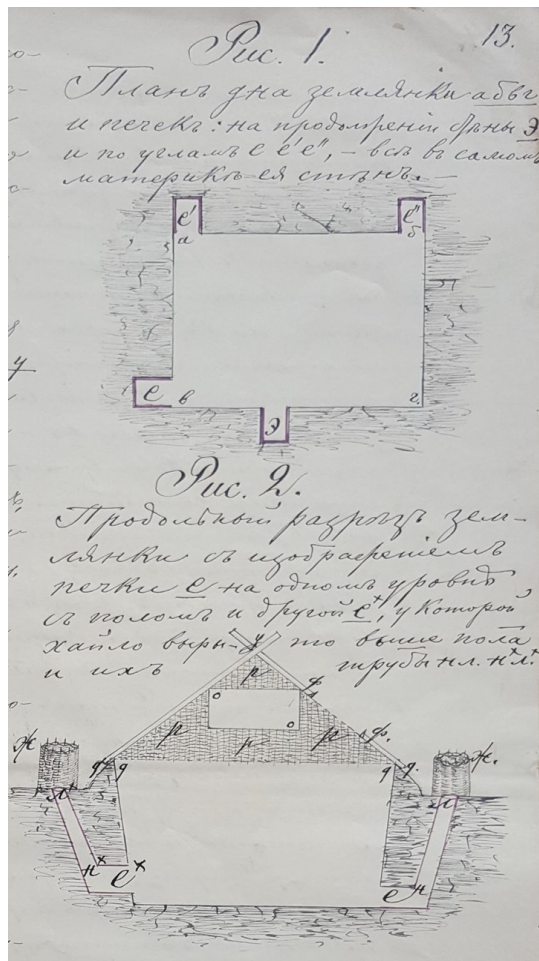 13.
Рис. 1.
Планъ дна землянки абвг
и печекъ: на продолженіи стѣны Э
и по угламъ е е' е", – всѣ въ самомъ
материкѣ ея стѣнъ. –
е' е"
а б
е в г.
Э
Рис. 2.
Продольный разрѣзъ зем-
лянки съ изображеніемъ
печки е на одномъ уровнѣ
съ поломъ и другой е+, у которой
хайло выры- то выше пола
и ихъ трубы нл. н+л+.
у
р ф
о
о
р р р ф.
ж ж.
д д д д.
л+ л
н× е× е н